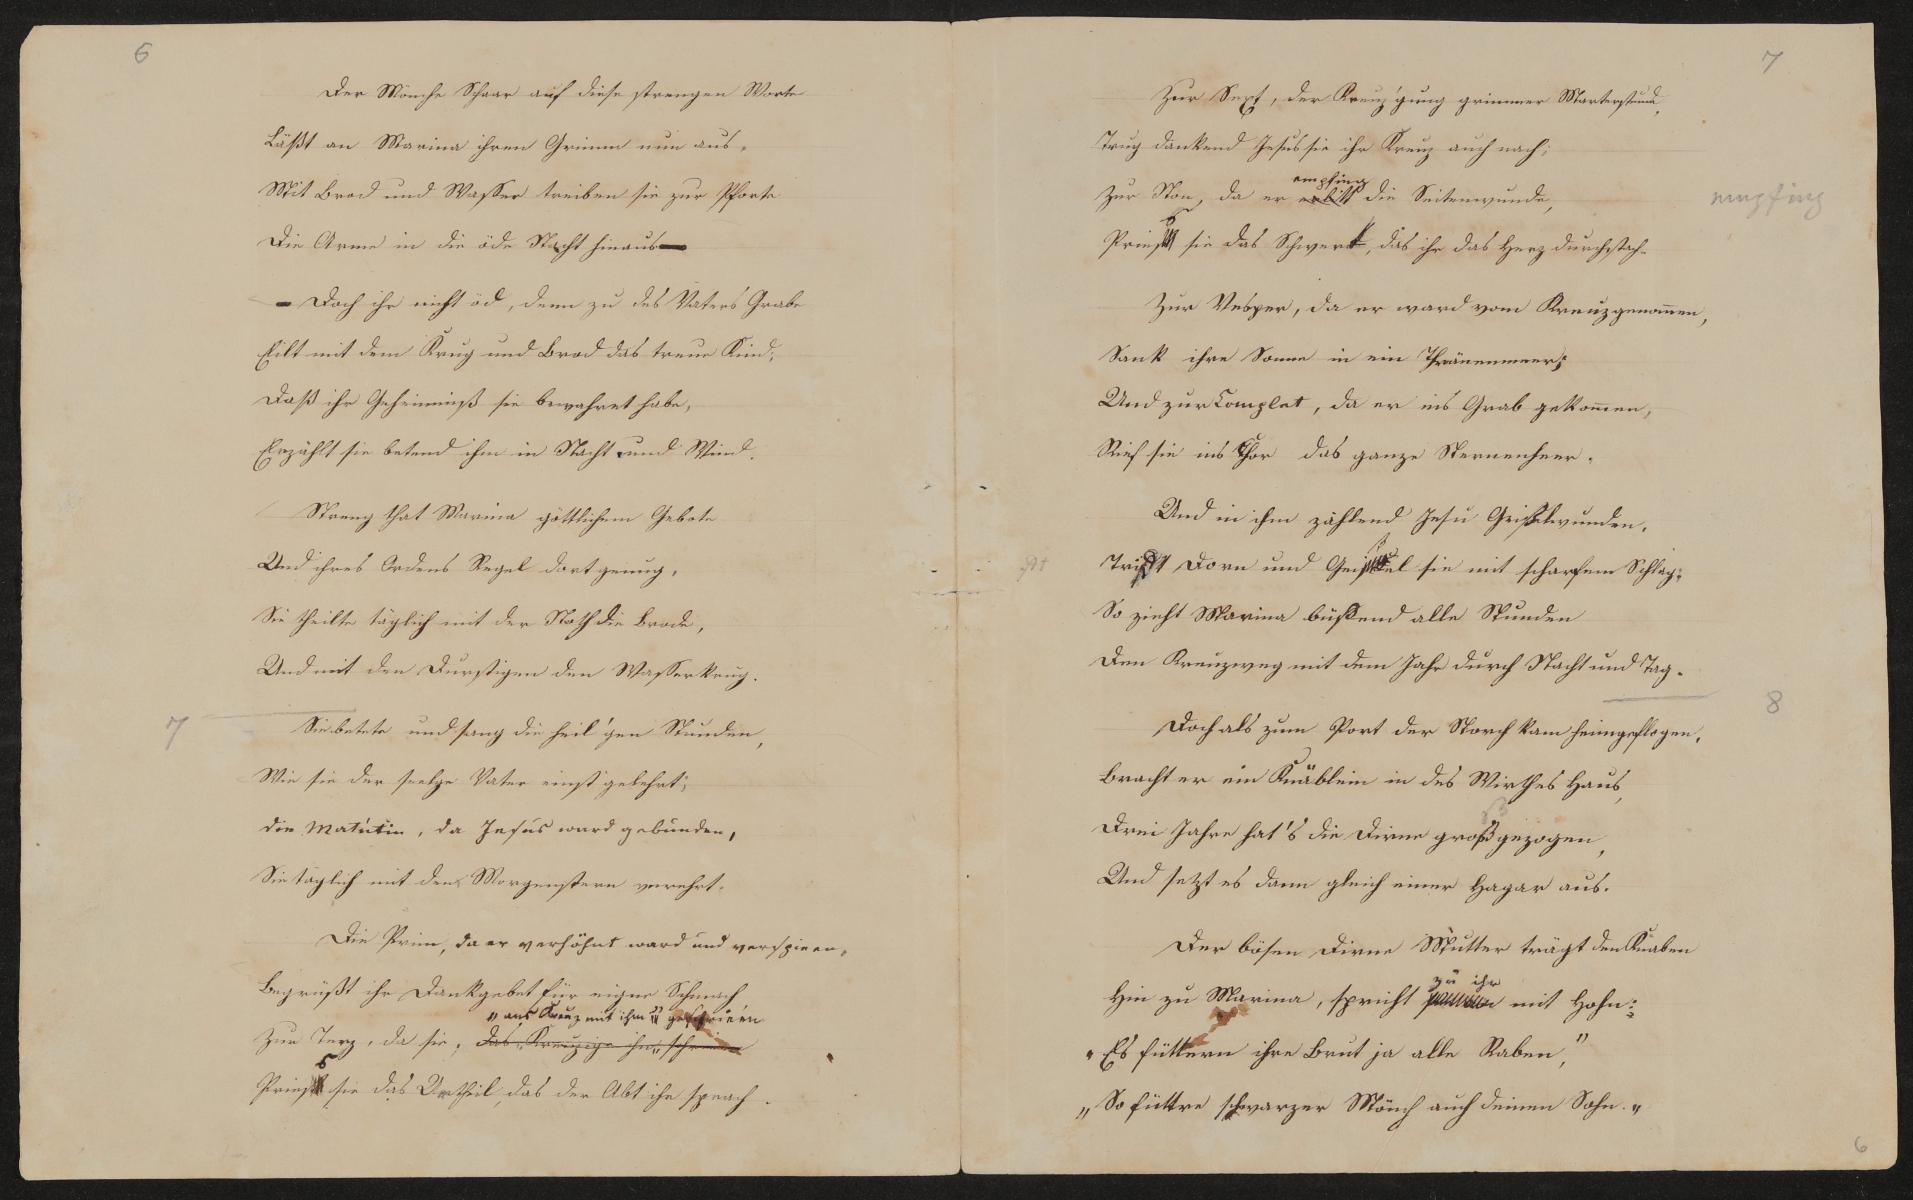 6
Der Mönche Schaar auf diese strengen Worte
Läßt an Marina ihren Grimm nun aus,
Mit Brod und Wasser treiben sie zur Pforte
Die Arme in die öde Nacht hinaus —
— Doch ihr nicht öd, denn zu des Vaters Grabe
Eilt mit dem Krug und Brod das treue Kind;
Daß ihr Geheimniß sie bewahret habe,
Erzählt sie betend ihm in Nacht und Wind.
Streng that Marina göttlichem Gebote
Und ihres Ordens Regel dort genug,
Sie theilte täglich mit der Noth die Brode,
Und mit den Durstigen den Wasserkrug.
7
Sie betete und sang die heil'gen Stunden,
Wie sie der seelge Vater einst gelehrt;
die Matutin, da Jesus ward gebunden,
Sie täglich mit dem Morgenstern verehrt.
Die Prim, da er verhöhnt ward und verspieen,
Begrüßt ihr Dankgebet für eigne Schmach,
„ans Kreuz mit ihm“ geschrieen
Zur Terz, da sie, das „Kreuzige ihn“ schrieen
Pries sie das Urtheil, das der Abt ihr sprach.
7
Zur Sext, der Kreuz'gung grimmer Marterstund,
Trug dankend Jesus sie ihr Kreuz auch nach;
empfing
Zur Non, da er erlitt die Seitenwunde,
empfing
Pries sie das Schwert, das ihr das Herz durchstach.
Zur Vesper, da er ward vom Kreuz genommen,
Sank ihre Sonne in ein Thränenmeer;
Und zur Complet, da er ins Grab gekommen,
Rief sie ins Chor das ganze Sternenheer.
Und in ihm zählend Jesu Geißelwunden,
Trifft Dorn und Geißel sie mit scharfem Schlag;
So zieht Marina büßend alle Stunden
Den Kreuzweg mit dem Jahr durch Nacht und Tag.
8
Doch als zum Port der Storch kam heimgeflogen,
Bracht er ein Knäblein in des Wirthes Haus,
Drei Jahre hat's die Dirne großgezogen,
Und setzt es dann gleich einer Hagar aus.
Der bösen Dirne Mutter trägt den Knaben
zu ihr
Hin zu Marina, spricht mit Hohn:
„Es füttern ihre Brut ja alle Raben,“
„So füttre schwarzer Mönch auch deinen Sohn.“
6